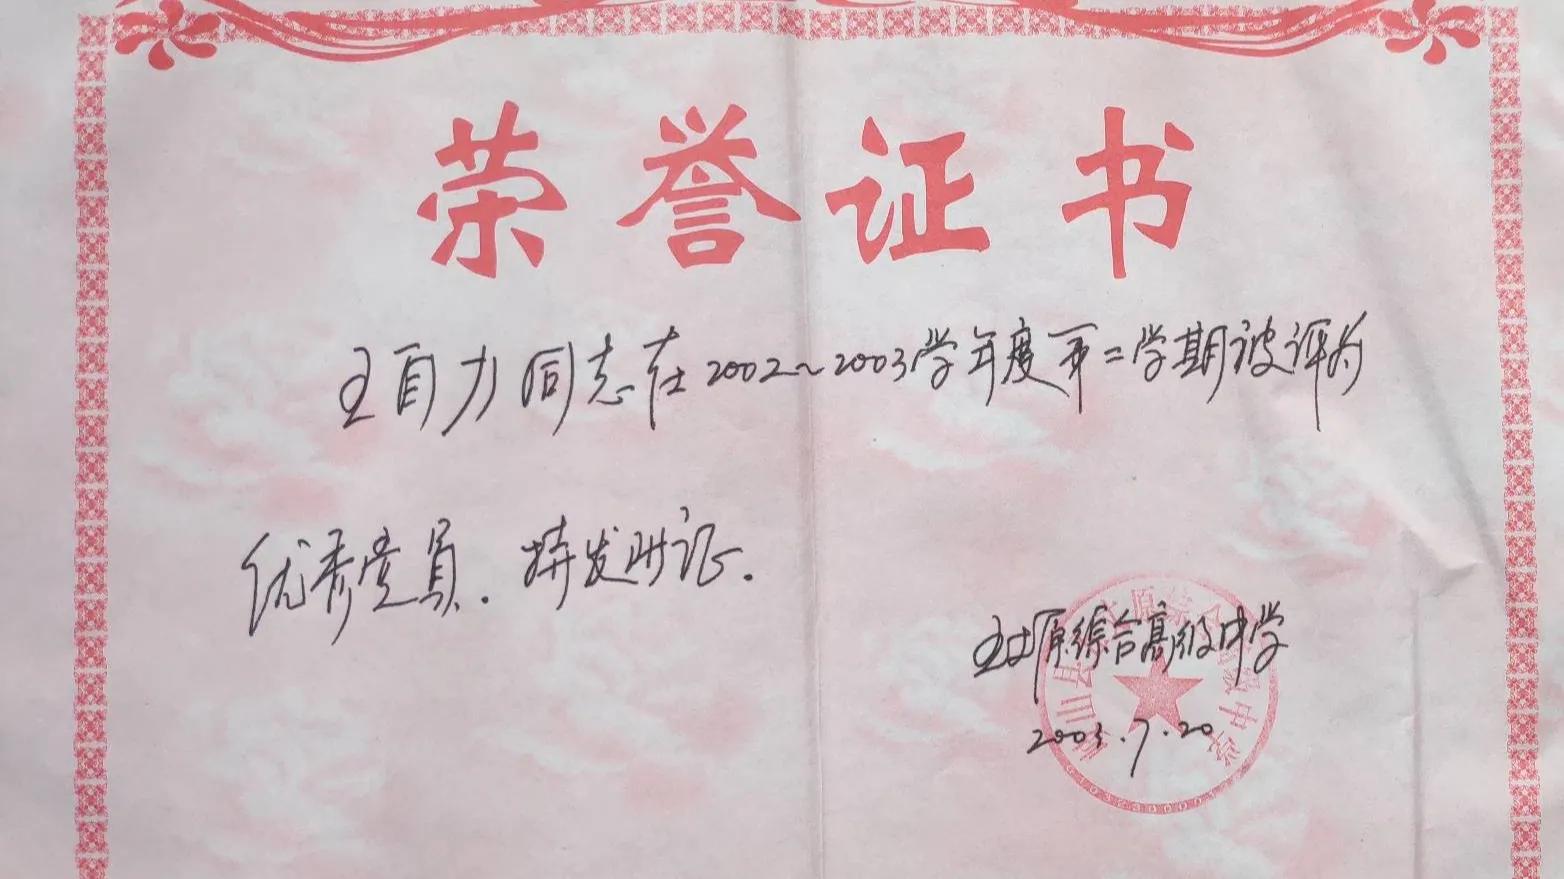 荣誉证书
王自力同志在2002~2003学年度第二学期被评为
优秀党员.特发此证.
五丈原综合高级中学
2003.7.20